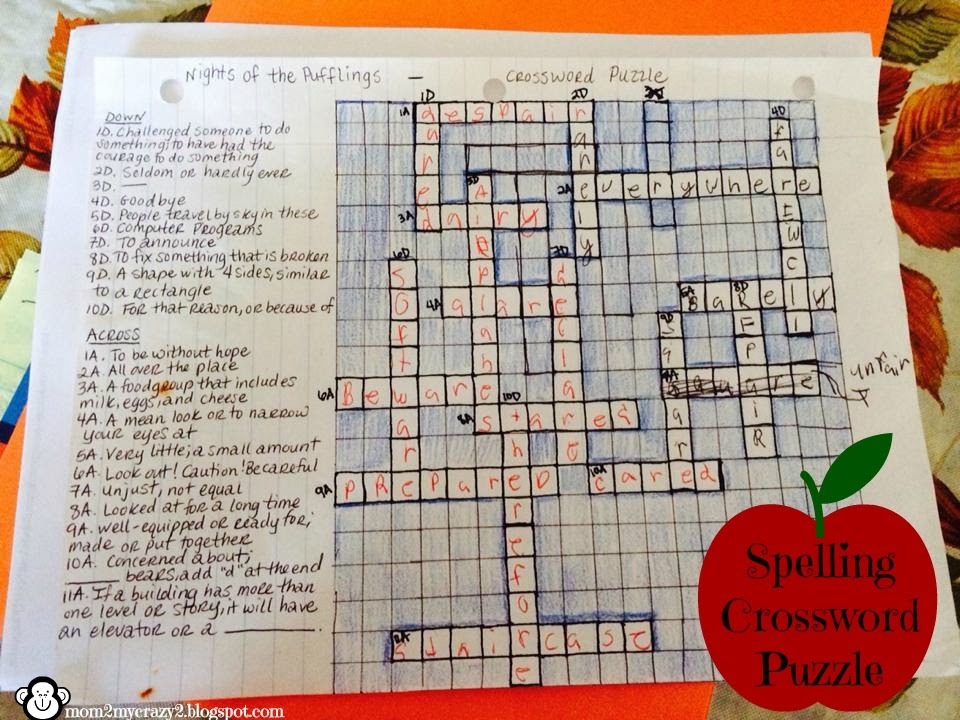 Nights of the Pufflings — CROSSWORD PUZZLE
DOWN
1D. Challenged someone to do
something; to have had the
courage to do something
2D. Seldom or hardly ever
3D. —
4D. Goodbye
5D. People travel by sky in these
6D. Computer Programs
7D. To announce
8D. To fix something that is broken
9D. A shape with 4 sides, similar
to a rectangle
10D. For that reason, or because of
ACROSS
1A. To be without hope
2A. All over the place
3A. A food group that includes
milk, eggs, and cheese
4A. A mean look or to narrow
your eyes at
5A. Very little; a small amount
6A. Look out! Caution! Be careful
7A. Unjust, not equal
8A. Looked at for a long time
9A. Well-equipped or ready for;
made or put together
10A. Concerned about;
_____ bears, add "d" at the end
11A. If a building has more than
one level or story, it will have
an elevator or a _________.
1D 2D 4D
1A despair
2A everywhere
3A dairy
6D 7D
4A glare
5A Barely 8D
9D
unfair
6A Beware 10D
8A stared
9A PREPareD 10A cared
staircase
Spelling
Crossword
Puzzle
mom2mycrazy2.blogspot.com